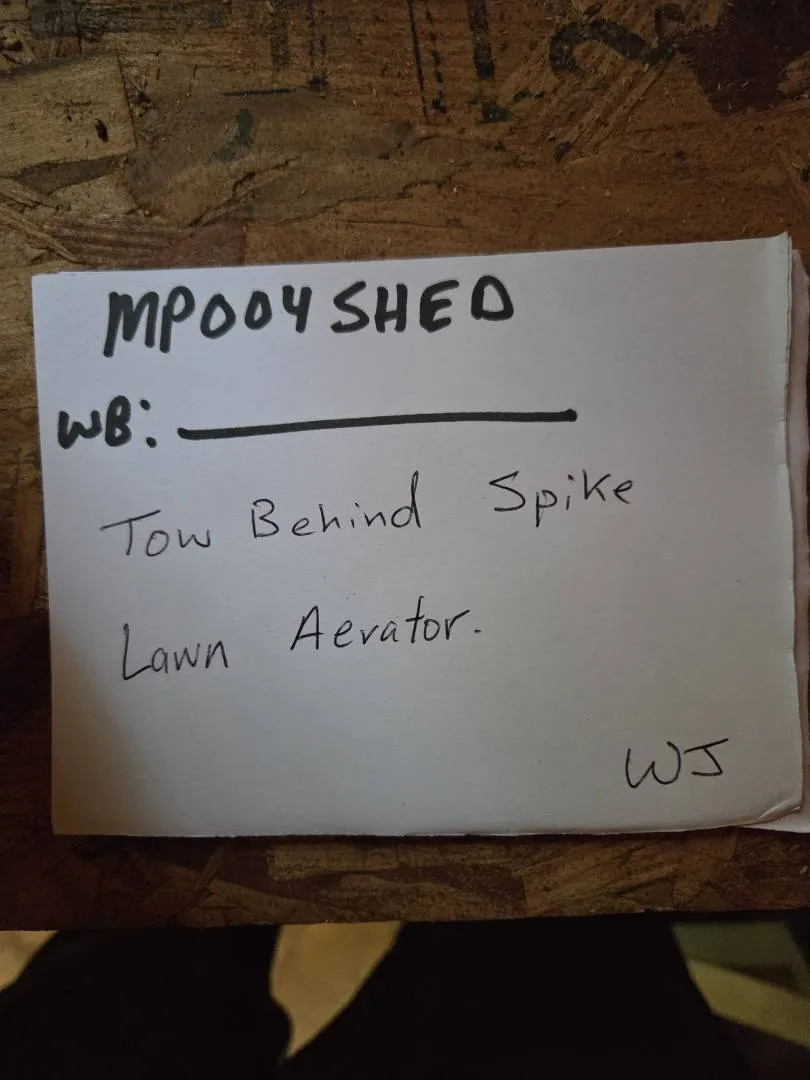 MP004 SHED
WB:
Tow Behind Spike
Lawn Aerator.
WJ